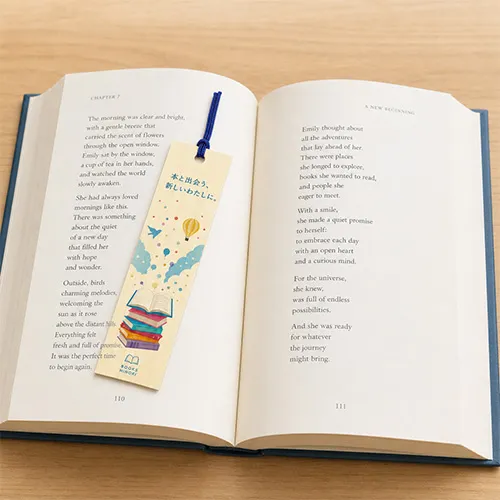 CHAPTER 7
The morning was clear and bright,
with a gentle breeze that
carried the scent of flowers
through the open window.
Emily sat by the window,
a cup of tea in her hands,
and watched the world
slowly awaken.
She had always loved
mornings like this.
There was something
about the quiet
of a new day
that filled her
with hope
and wonder.
Outside, birds
charming melodies,
welcoming the
sun as it rose
above the distant hills.
Everything felt
fresh and full of promise.
It was the perfect time
to begin again.
110
本と出会う、
新しいわたしに。
BOOKS
A NEW BEGINNING
Emily thought about
all the adventures
that lay ahead of her.
There were places
she longed to explore,
books she wanted to read,
and people she
eager to meet.
With a smile,
she made a quiet promise
to herself:
to embrace each day
with an open heart
and a curious mind.
For the universe,
she knew,
was full of endless
possibilities.
And she was ready
for whatever
the journey
might bring.
111